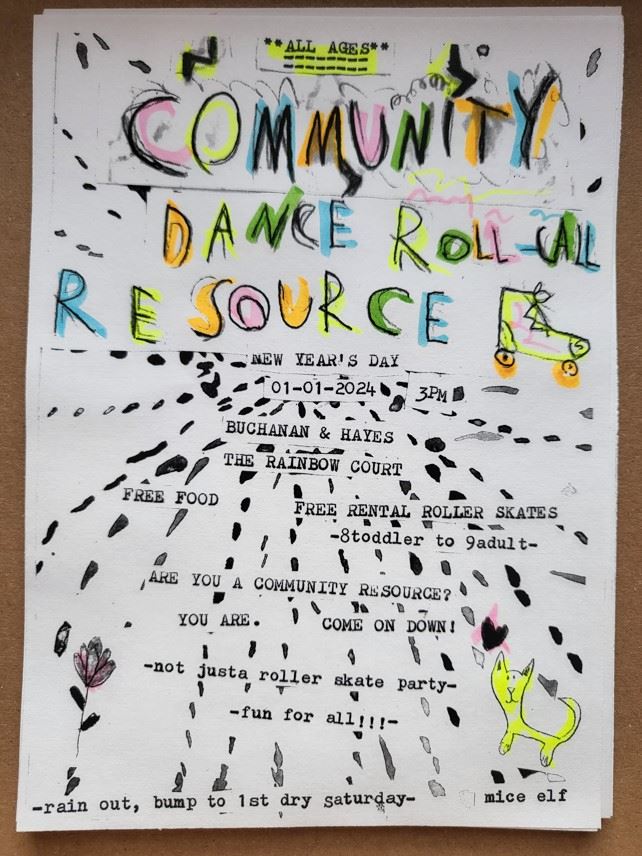 **ALL AGES**
COMMUNITY
DANCE ROLL-CALL
RESOURCE
NEW YEAR'S DAY
01-01-2024 3PM
BUCHANAN & HAYES
THE RAINBOW COURT
FREE FOOD
FREE RENTAL ROLLER SKATES
-8toddler to 9adult-
ARE YOU A COMMUNITY RESOURCE?
YOU ARE. COME ON DOWN!
-not justa roller skate party-
-fun for all!!!-
-rain out, bump to 1st dry saturday-
mice elf